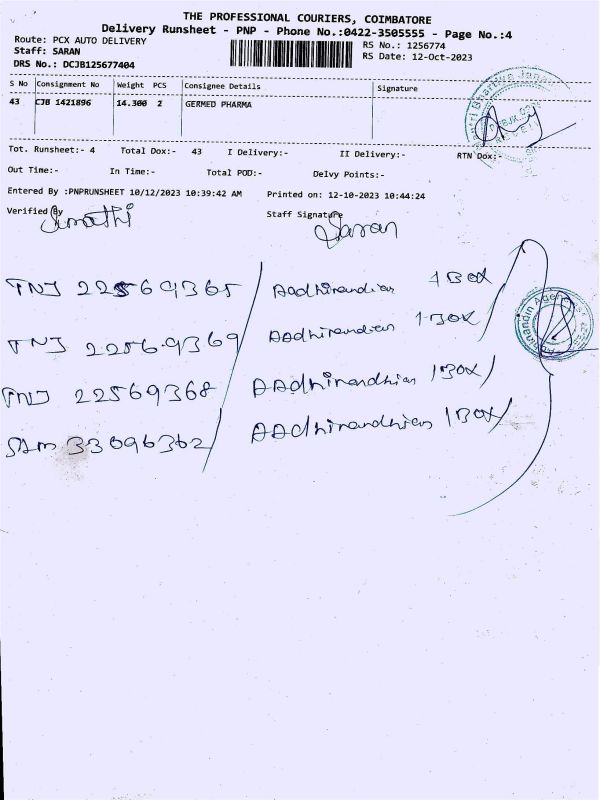 THE PROFESSIONAL COURIERS, COIMBATORE
Delivery Runsheet - PNP - Phone No.:0422-3505555 - Page No.:4
Route: PCX AUTO DELIVERY
RS No.: 1256774
Staff: SARAN
RS Date: 12-Oct-2023
DRS No.: DCJB125677404
S No Consignment No Weight PCS Consignee Details Signature
43 CJB 1421896 14.300 2 GERMED PHARMA
Tot. Runsheet:- 4 Total Dox:- 43 I Delivery:- II Delivery:- RTN Dox:-
Out Time:- In Time:- Total POD:- Delvy Points:-
Entered By :PNPRUNSHEET 10/12/2023 10:39:42 AM Printed on: 12-10-2023 10:44:24
Verified By Staff Signature
Saran
TNJ 22569365 / Aadhinandian 1 BOX
TNJ 22569369 Aadhinandian 1 BOX /
TNJ 22569368 AAdhinandhian 1 BOX /
33096362 / AAdhinandhian 1 BOX /